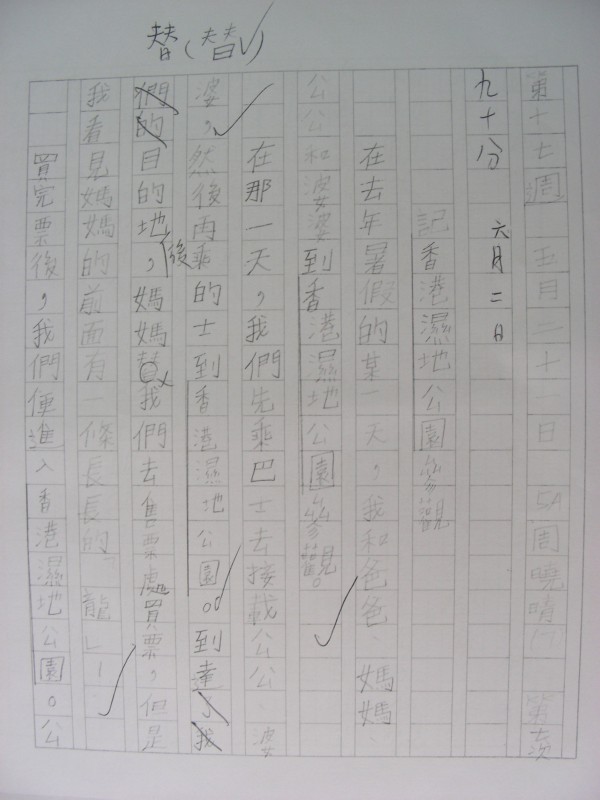 替(替)
第十七週 五月二十一日 5A周曉晴 第 次
九十分 六月二日
記香港濕地公園參觀
在去年暑假的某一天,我和爸爸、媽媽、
公公和婆婆到香港濕地公園參觀。
在那一天,我們先乘巴士去接載公公、婆
婆,然後再乘的士到香港濕地公園。到達了我
們的目的地後,媽媽替我們去售票處買票,但是
我看見媽媽的前面有一條長長的「龍」!
買完票後,我們便進入香港濕地公園。公